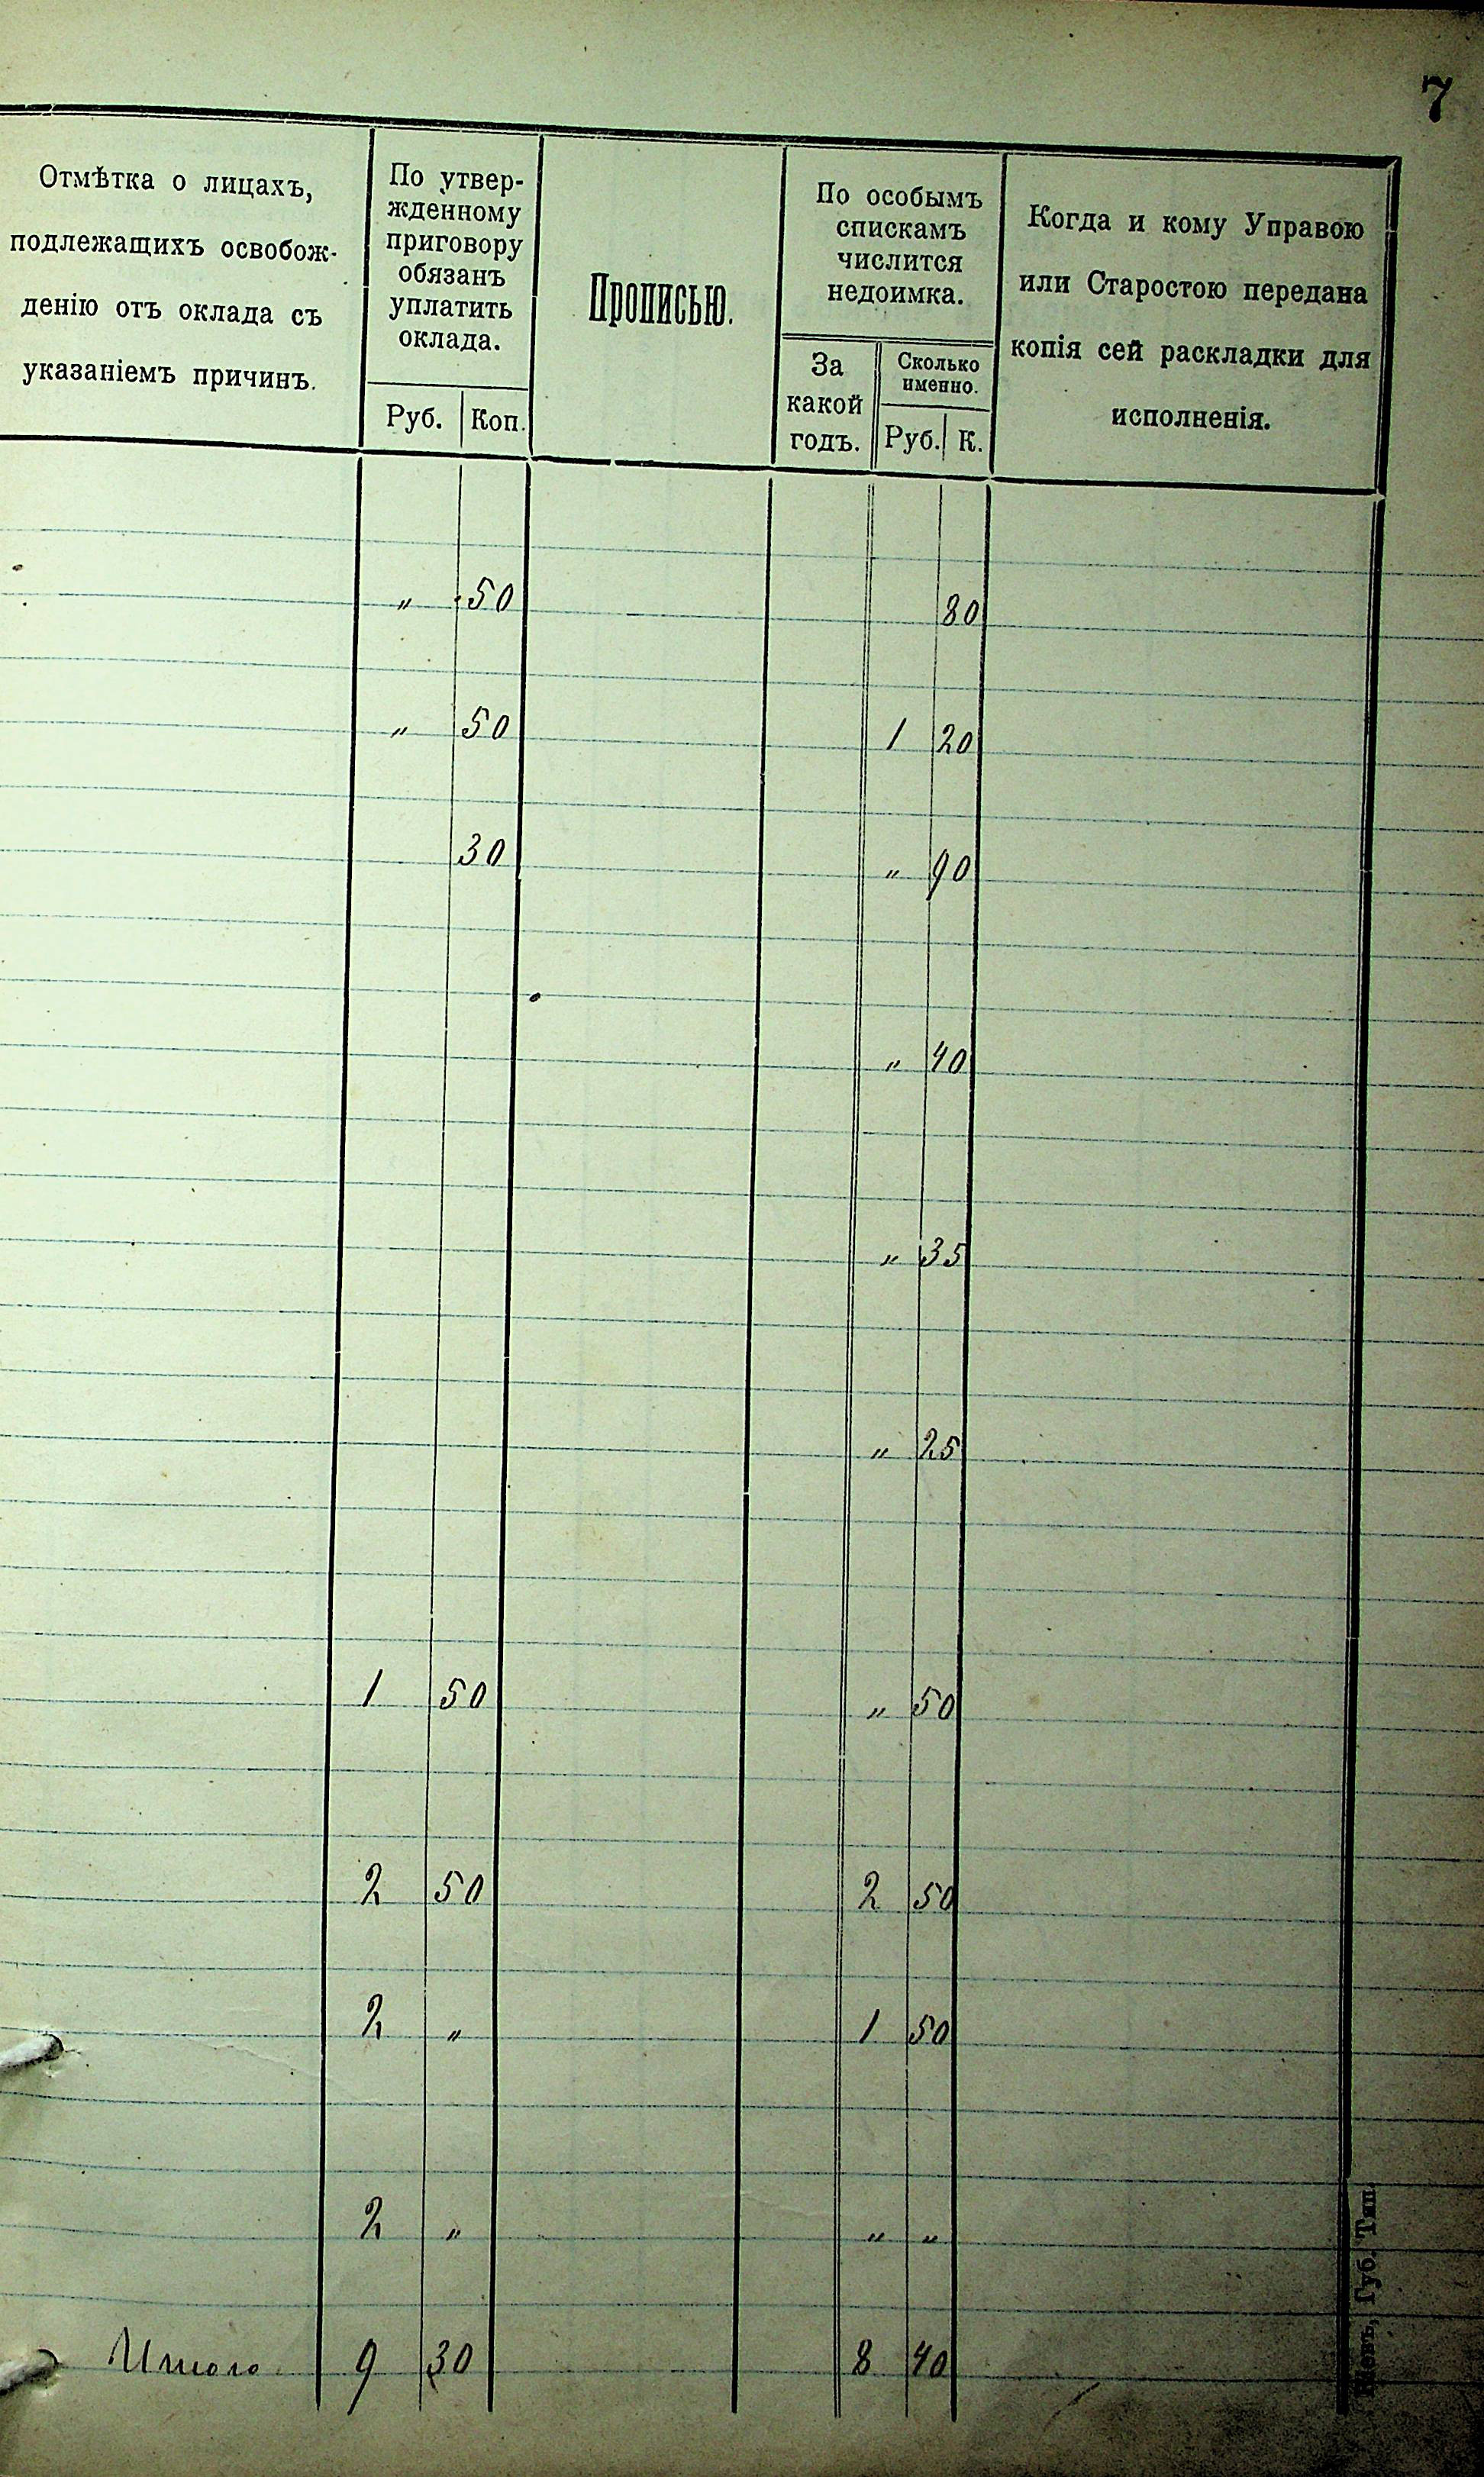 7
Отмѣтка о лицахъ,
подлежащихъ освобож-
денію отъ оклада съ
указаніемъ причинъ.
По утвер-
жденному
приговору
обязанъ
уплатить
оклада.
Руб. Коп.
Прописью.
По особымъ
спискамъ
числится
недоимка.
За
какой
годъ.
Сколько
именно.
Руб. К.
Когда и кому Управою
или Старостою передана
копія сей раскладки для
исполненія.
" 50 80
" 50 1 20
30 " 90
" 40
" 35
" 25
1 50 " 50
2 50 2 50
2 " 1 50
2 " " "
Итого 9 30 8 40
Губ. Тип.